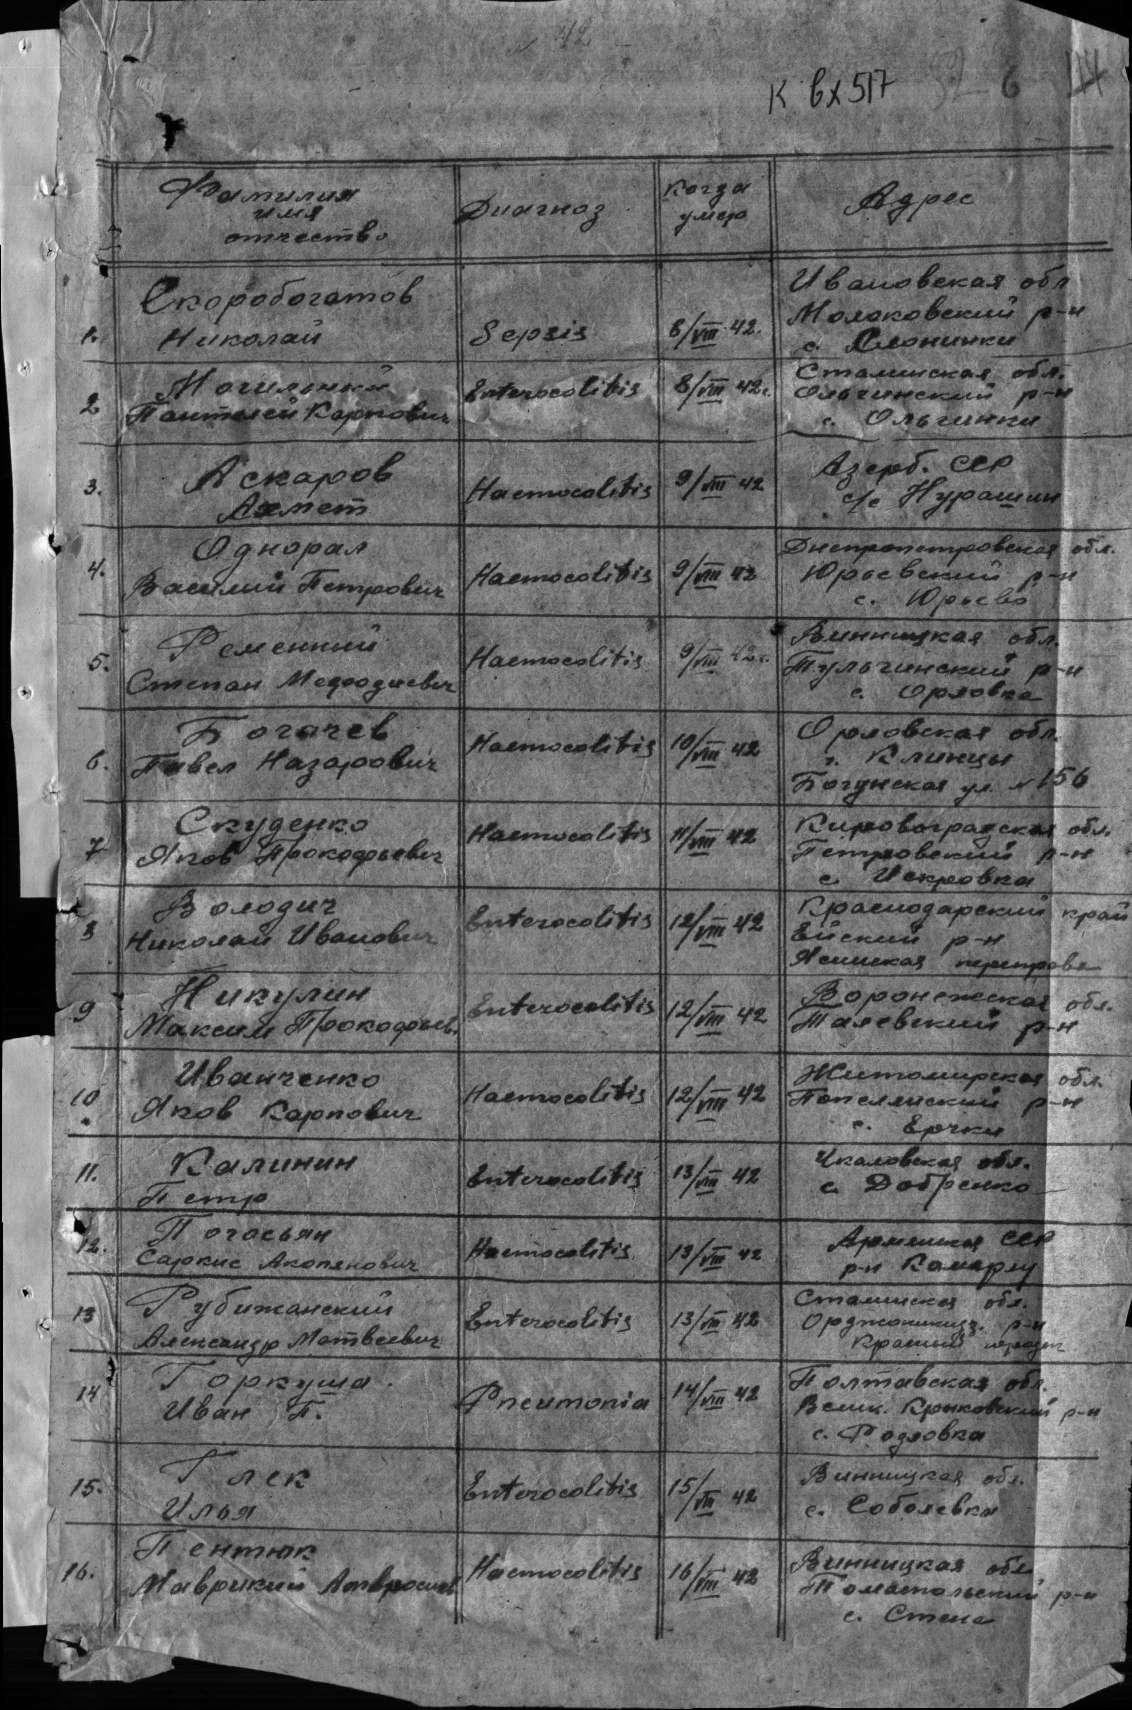 № 42
К вх 517
6
Фамилия
имя
отчество
Диагноз
Когда
умер
Адрес
1.
Скоробогатов
Николай
Sepsis
8/VIII 42.
Ивановская обл
Молоковский р-н
с. Слонинки
2
Могильный
Пантелей Карпович
Enterocolitis
8/VIII 42г.
Сталинская обл.
Ольгинский р-н
с. Ольгинки
3.
Аскаров
Ахмет
Haemocolitis
9/VIII 42
Азерб. ССР
с/с Нурашин
4.
Однорал
Василий Петрович
Haemocolitis
9/VIII 42
Днепропетровская обл.
Юрьевский р-н
с. Юрьево
5.
Ременный
Степан Мефодиевич
Haemocolitis
9/VIII 42г.
Винницкая обл.
Тульчинский р-н
с. Орловка
6.
Богачев
Павел Назарович
Haemocolitis
10/VIII 42
Орловская обл.
г. Клинцы
Богунская ул. №156
7
Скуденко
Яков Прокофьевич
Haemocolitis
11/VIII 42
Кировоградская обл.
Петровский р-н
с. Искровка
8
Володич
Николай Иванович
Enterocolitis
12/VIII 42
Краснодарский край
Ейский р-н
переправа
9
Никулин
Максим Прокофьев.
Enterocolitis
12/VIII 42
Воронежская обл.
Талевский р-н
10
Иванченко
Яков Карпович
Haemocolitis
12/VIII 42
Житомирская обл.
Попелянский р-н
с. Ерчки
11.
Калинин
Петр
Enterocolitis
13/VIII 42
Чкаловская обл.
с. Добренко
12.
Погосьян
Саркис Акопянович
Haemocolitis
13/VIII 42
Армянская ССР
р-н Камарлу
13
Рубижанский
Александр Матвеевич
Enterocolitis
13/VIII 42
Сталинская обл.
Орджоникидз. р-н
Красный
14
Горкуша.
Иван П.
Pneumonia
14/VIII 42
Полтавская обл.
Велик. Крюковский р-н
с. Родловка
15.
Глек
Илья
Enterocolitis
15/VIII 42
Винницкая обл.
с. Соболевка
16.
Пентюк
Маврикий
Haemocolitis
16/VIII 42
Винницкая обл.
Томашпольский р-н
с. Стена